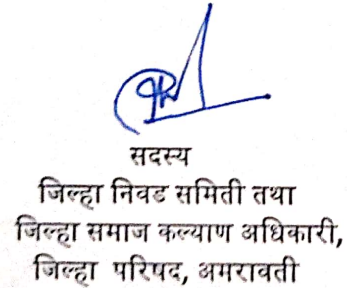 सदस्य
जिल्हा निवड समिती तथा
जिल्हा समाज कल्याण अधिकारी,
जिल्हा परिषद, अमरावती